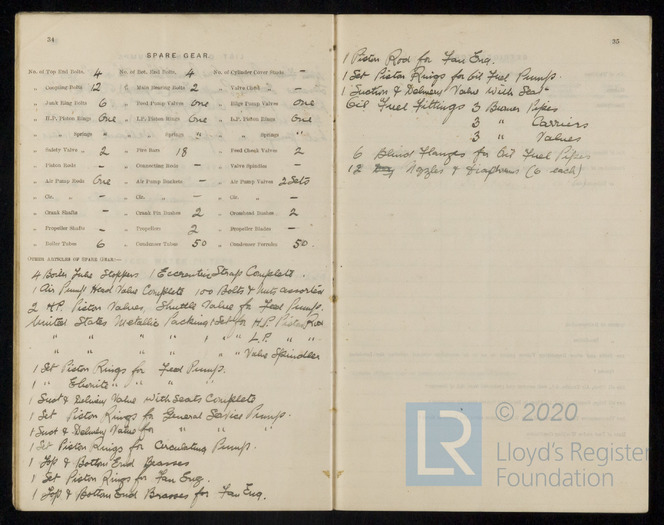 34
SPARE GEAR.
No. of Top End Bolts, 4 No. of Bot. End Bolts, 4 No. of Cylinder Cover Studs —
„ Coupling Bolts 12 „ Main Bearing Bolts 2 „ Valve Chest „ —
„ Junk Ring Bolts 6 „ Feed Pump Valves One „ Bilge Pump Valves One
„ H.P. Piston Rings One „ I.P. Piston Rings One „ L.P. Piston Rings One
„ „ Springs „ „ „ Springs „ „ „ Springs „
„ Safety Valve „ 2 „ Fire Bars 18 „ Feed Check Valves 2
„ Piston Rods — „ Connecting Rods — „ Valve Spindles —
„ Air Pump Rods One „ Air Pump Buckets — „ Air Pump Valves 2 Sets
„ Cir. „ — „ Cir. „ — „ Cir. „ —
„ Crank Shafts — „ Crank Pin Bushes 2 „ Crosshead Bushes 2
„ Propeller Shafts — „ Propellers 2 „ Propeller Blades —
„ Boiler Tubes 6 „ Condenser Tubes 50 „ Condenser Ferrules 50
OTHER ARTICLES OF SPARE GEAR:—
4 Boiler Tube Stoppers 1 Eccentric Strap Complete.
1 Air Pump Head Valve Complete 100 Bolts & Nuts assorted
2 H.P. Piston Valves, Shuttle Valve for Feed Pump.
United States Metallic Packing 1 Set for H.P. Piston Rod
„ „ „ „ 1 „ „ L.P. „ „
„ „ „ „ „ „ Valve Spindles
1 Set Piston Rings for Feed Pump.
1 „ Ebonite „ „ „ „
1 Suct & Delivery Valve with Seats Complete
1 Set Piston Rings for General Service Pump.
1 Suct & Delivery Valve for „ „ „
1 Set Piston Rings for Circulating Pump.
1 Top & Bottom End Brasses
1 Set Piston Rings for Fan Eng.
1 Top & Bottom End Brasses for Fan Eng.
35
1 Piston Rod for Fan Eng.
1 Set Piston Rings for Oil Fuel Pump.
1 Suction & Delivery Valve with Seat
Oil Fuel Fittings 3 Burner Pipes
3 „ Carriers
3 „ Valves
6 Blind Flanges for Oil Fuel Pipes
12 Nozzles & Diaphrams (6 each)
LR © 2020
Lloyd's Register
Foundation